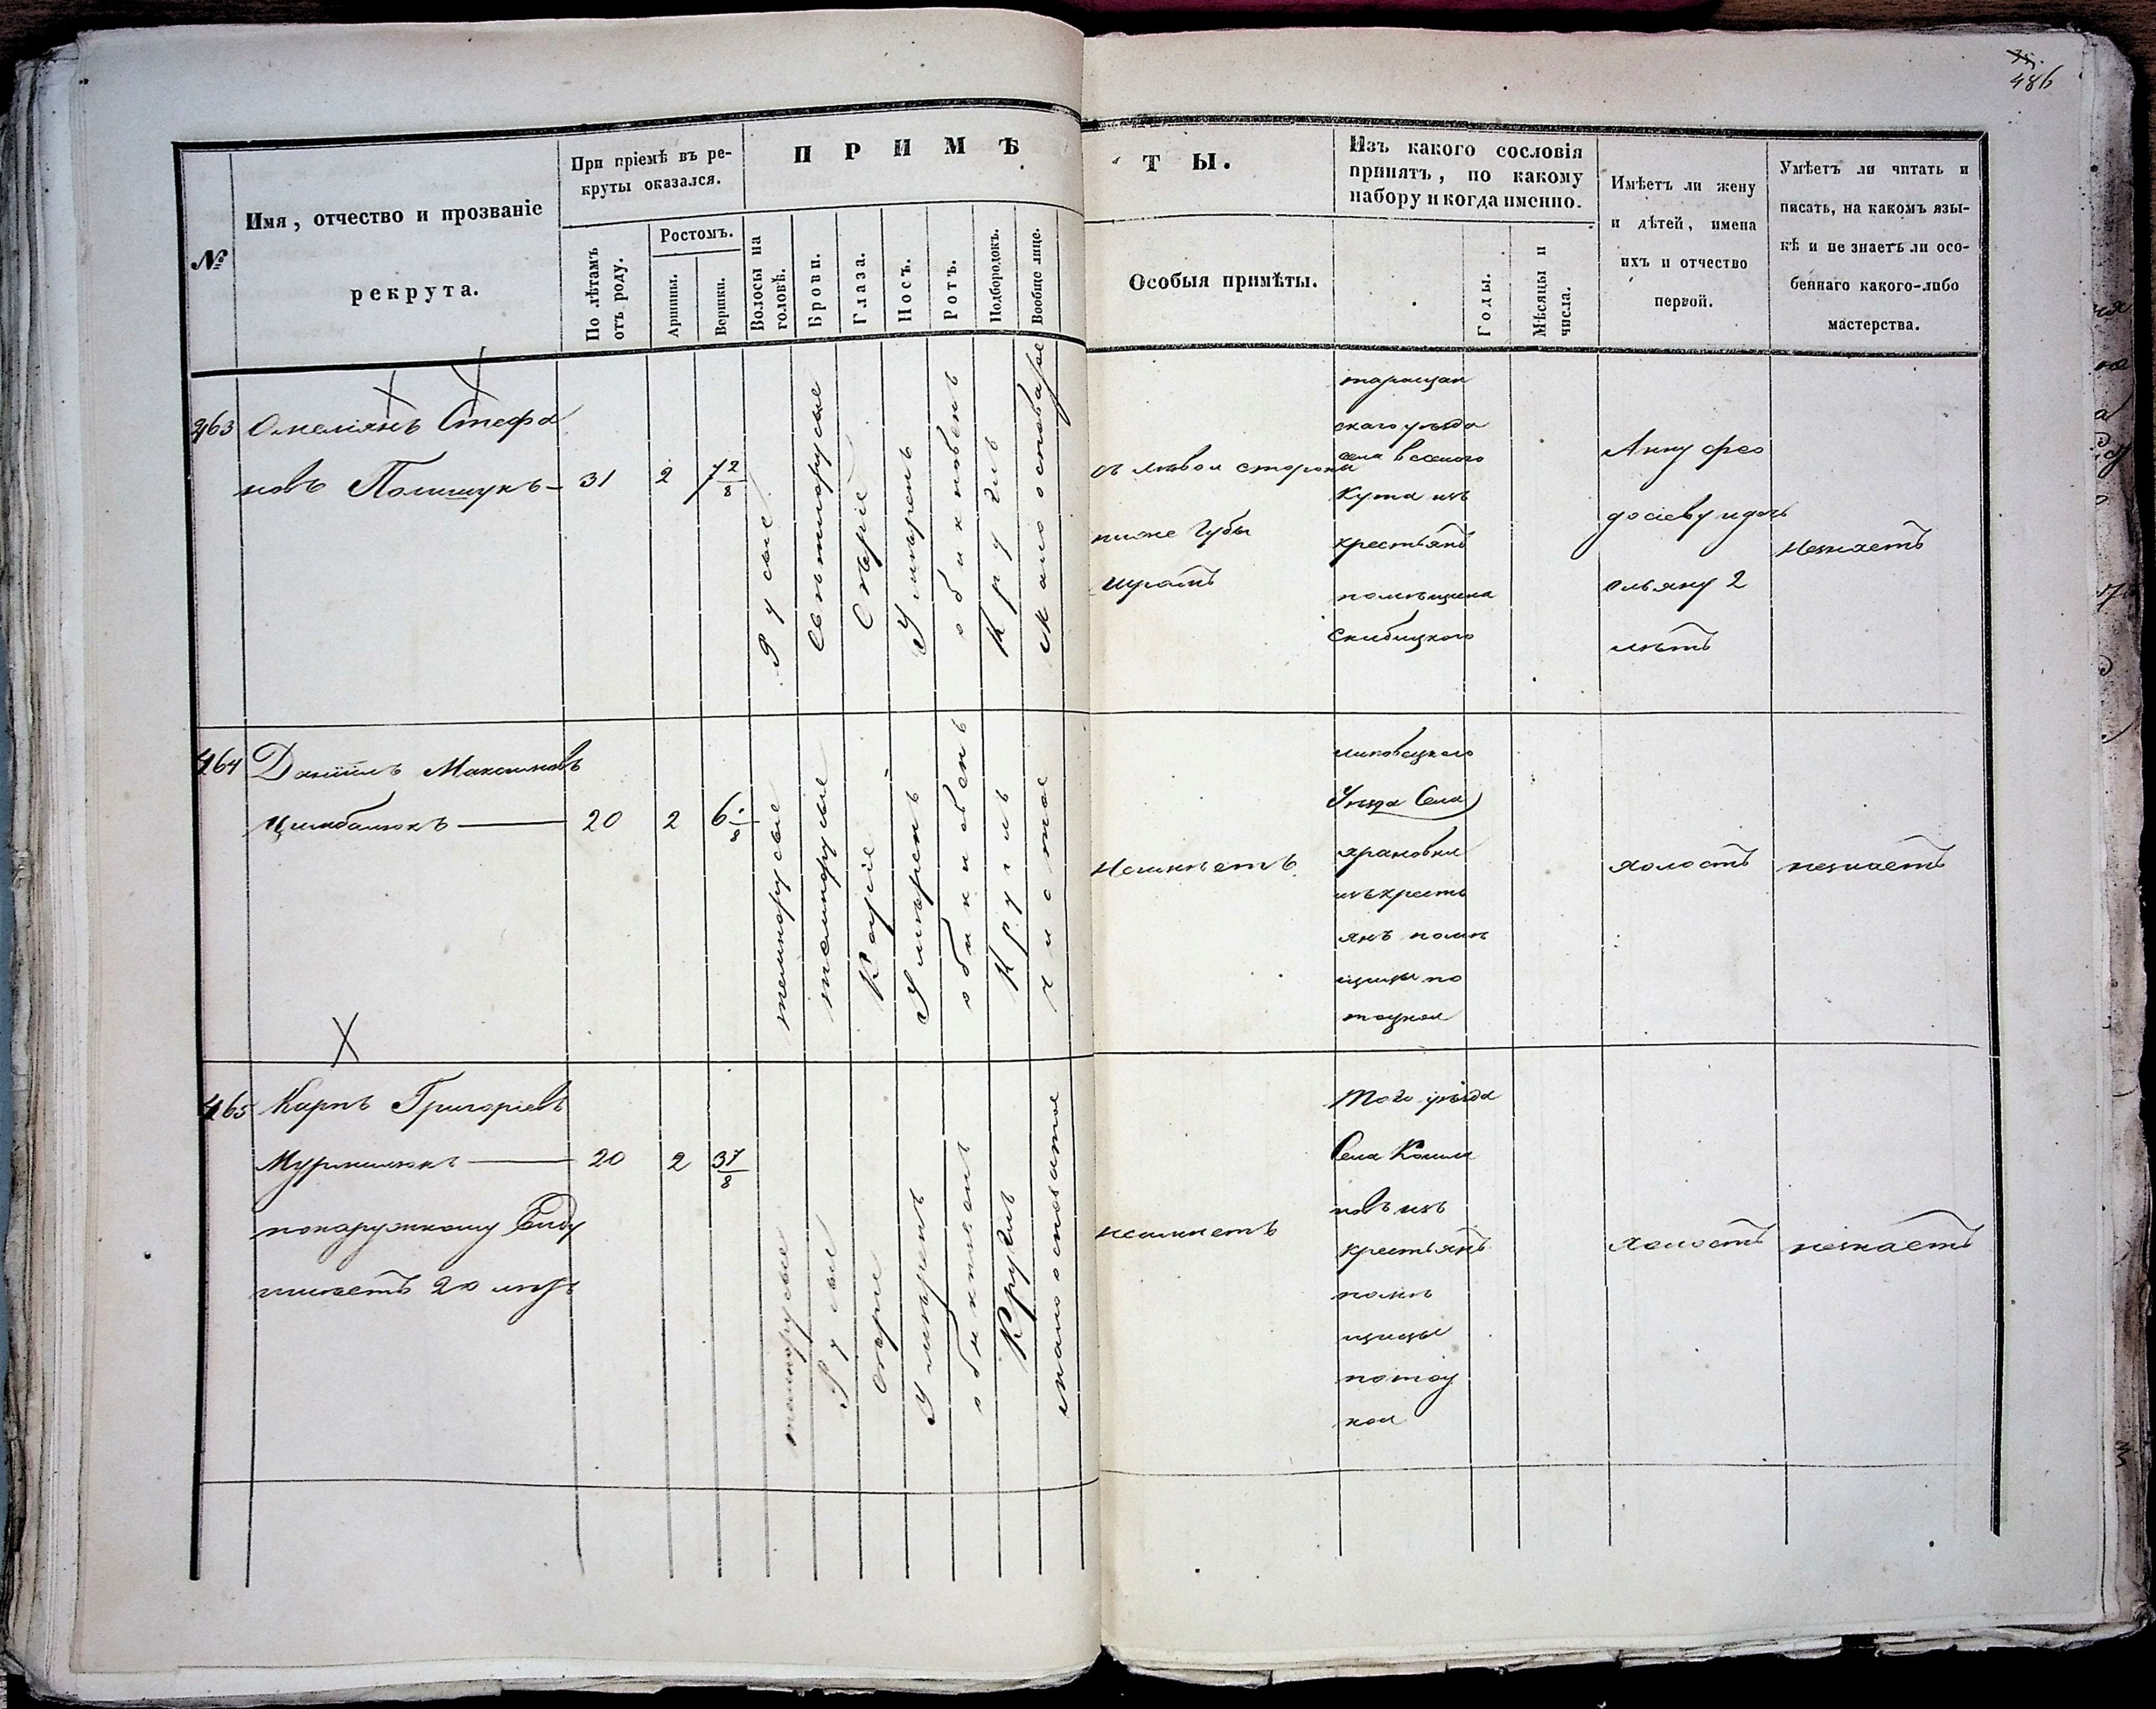 486
№
Имя, отчество и прозваніе
рекрута.
При пріемѣ въ ре-
круты оказался.
По лѣтамъ
отъ роду.
Ростомъ.
Аршины.
Вершки.
ПРИМѢ
ТЫ.
Волосы на
головѣ.
Брови.
Глаза.
Носъ.
Ротъ.
Подбородокъ.
Вообще лице.
Особыя примѣты.
Изъ какого сословія
принятъ, по какому
набору и когда именно.
Годы.
Мѣсяцы и
числа.
Имѣетъ ли жену
и дѣтей, имена
ихъ и отчество
первой.
Умѣетъ ли читать и
писать, на какомъ язы-
кѣ и не знаетъ ли осо-
беннаго какого-либо
мастерства.
463
Омеліянъ Стефа
новъ Полищукъ
31
2
7 2/8
Русые
свѣтлорусые
Сѣріе
Умѣренъ
обикновенъ
Круглъ
Мало
съ лѣвой стороны
ниже Губы
шрамъ
таращан
скаго уѣзда
села
Кута изъ
крестьянъ
помѣщика
Скибицкого
Анну фео
досіеву и дочь
ольяну 2
лѣтъ
Незнаетъ
464
Даніилъ Максимовъ
Цимбалюкъ
20
2
6 1/8
темнорусые
темнорусые
Каріе
Умѣренъ
обикновенъ
Круглъ
чистое
Неимѣетъ
липовецкого
Уѣзда Села
изъ кресть
янъ помѣ
щицы по
тоцкой
холостъ
незнаетъ
465
Карпъ Григоріевъ
понаружному Виду
имѣетъ 20 лѣтъ
20
2
3 7/8
темнорусые
Русые
сѣріе
Умѣренъ
обикновенъ
Круглъ
неимѣетъ
Того уѣзда
Села
новъ изъ
крестьянъ
помѣ
щицы
потоц
кой
холостъ
незнаетъ